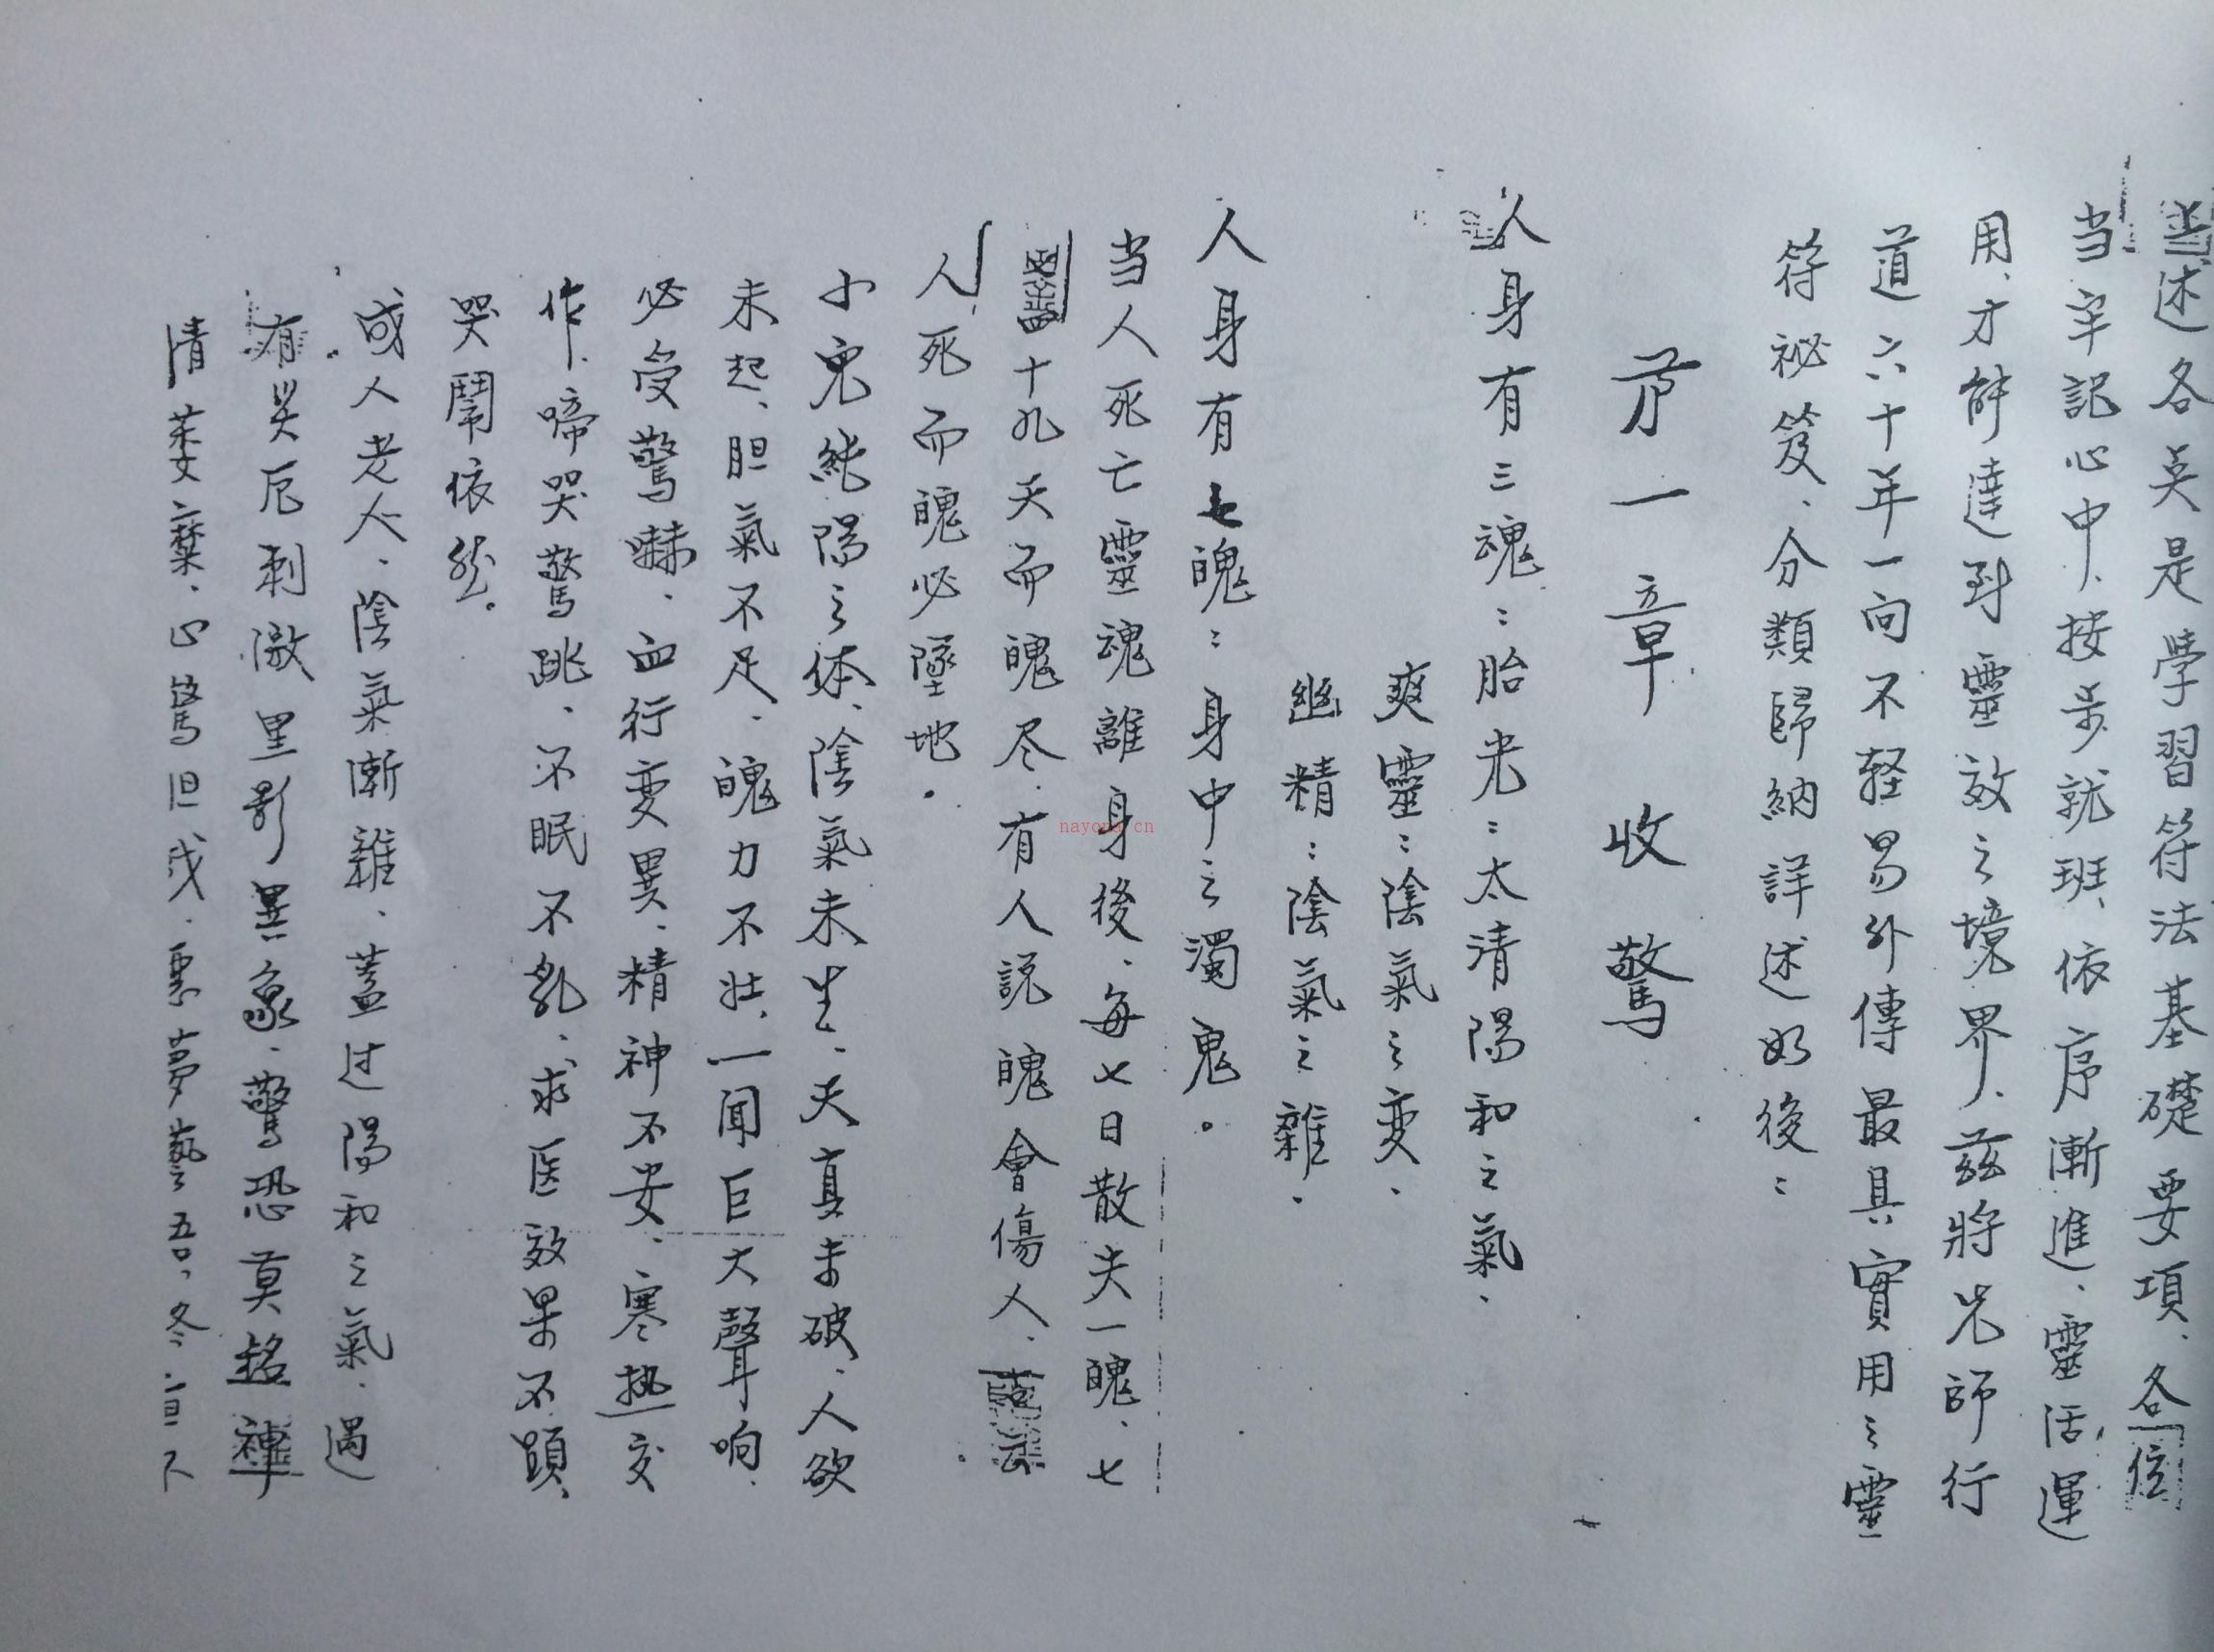 述各英是學習符法基礎要項、各位
当牢記心中、按步就班、依序漸進、靈活運
用、才能達到靈效之境界、茲將兄師行
道六十年一向不轻易外傳最具實用之靈
符祕笈、分類歸納詳述如後：
第一章 收驚
人身有三魂：胎光：太清陽和之氣、
爽靈：陰氣之变、
幽精：陰氣之雜、
人身有七魄：身中之濁鬼。
当人死亡靈魂離身後、每七日散失一魄、七
七四十九天而魄尽、有人説魄會傷人、
人死而魄必墜地。
小兒純陽之体、陰氣未生、天真未破、人欲
未起、胆氣不足、魄力不壮、一聞巨大聲响、
必受驚嚇、血行变異、精神不安、寒热交
作、啼哭驚跳、不眠不乳、求医效果不顕、
哭鬧依然。
成人老人、陰氣漸雜、蓋过陽和之氣、遇
有災厄刺激里影異象、驚恐莫銘、神
情萎靡、心驚胆战、悪夢藝吾、冬
nayona.cn